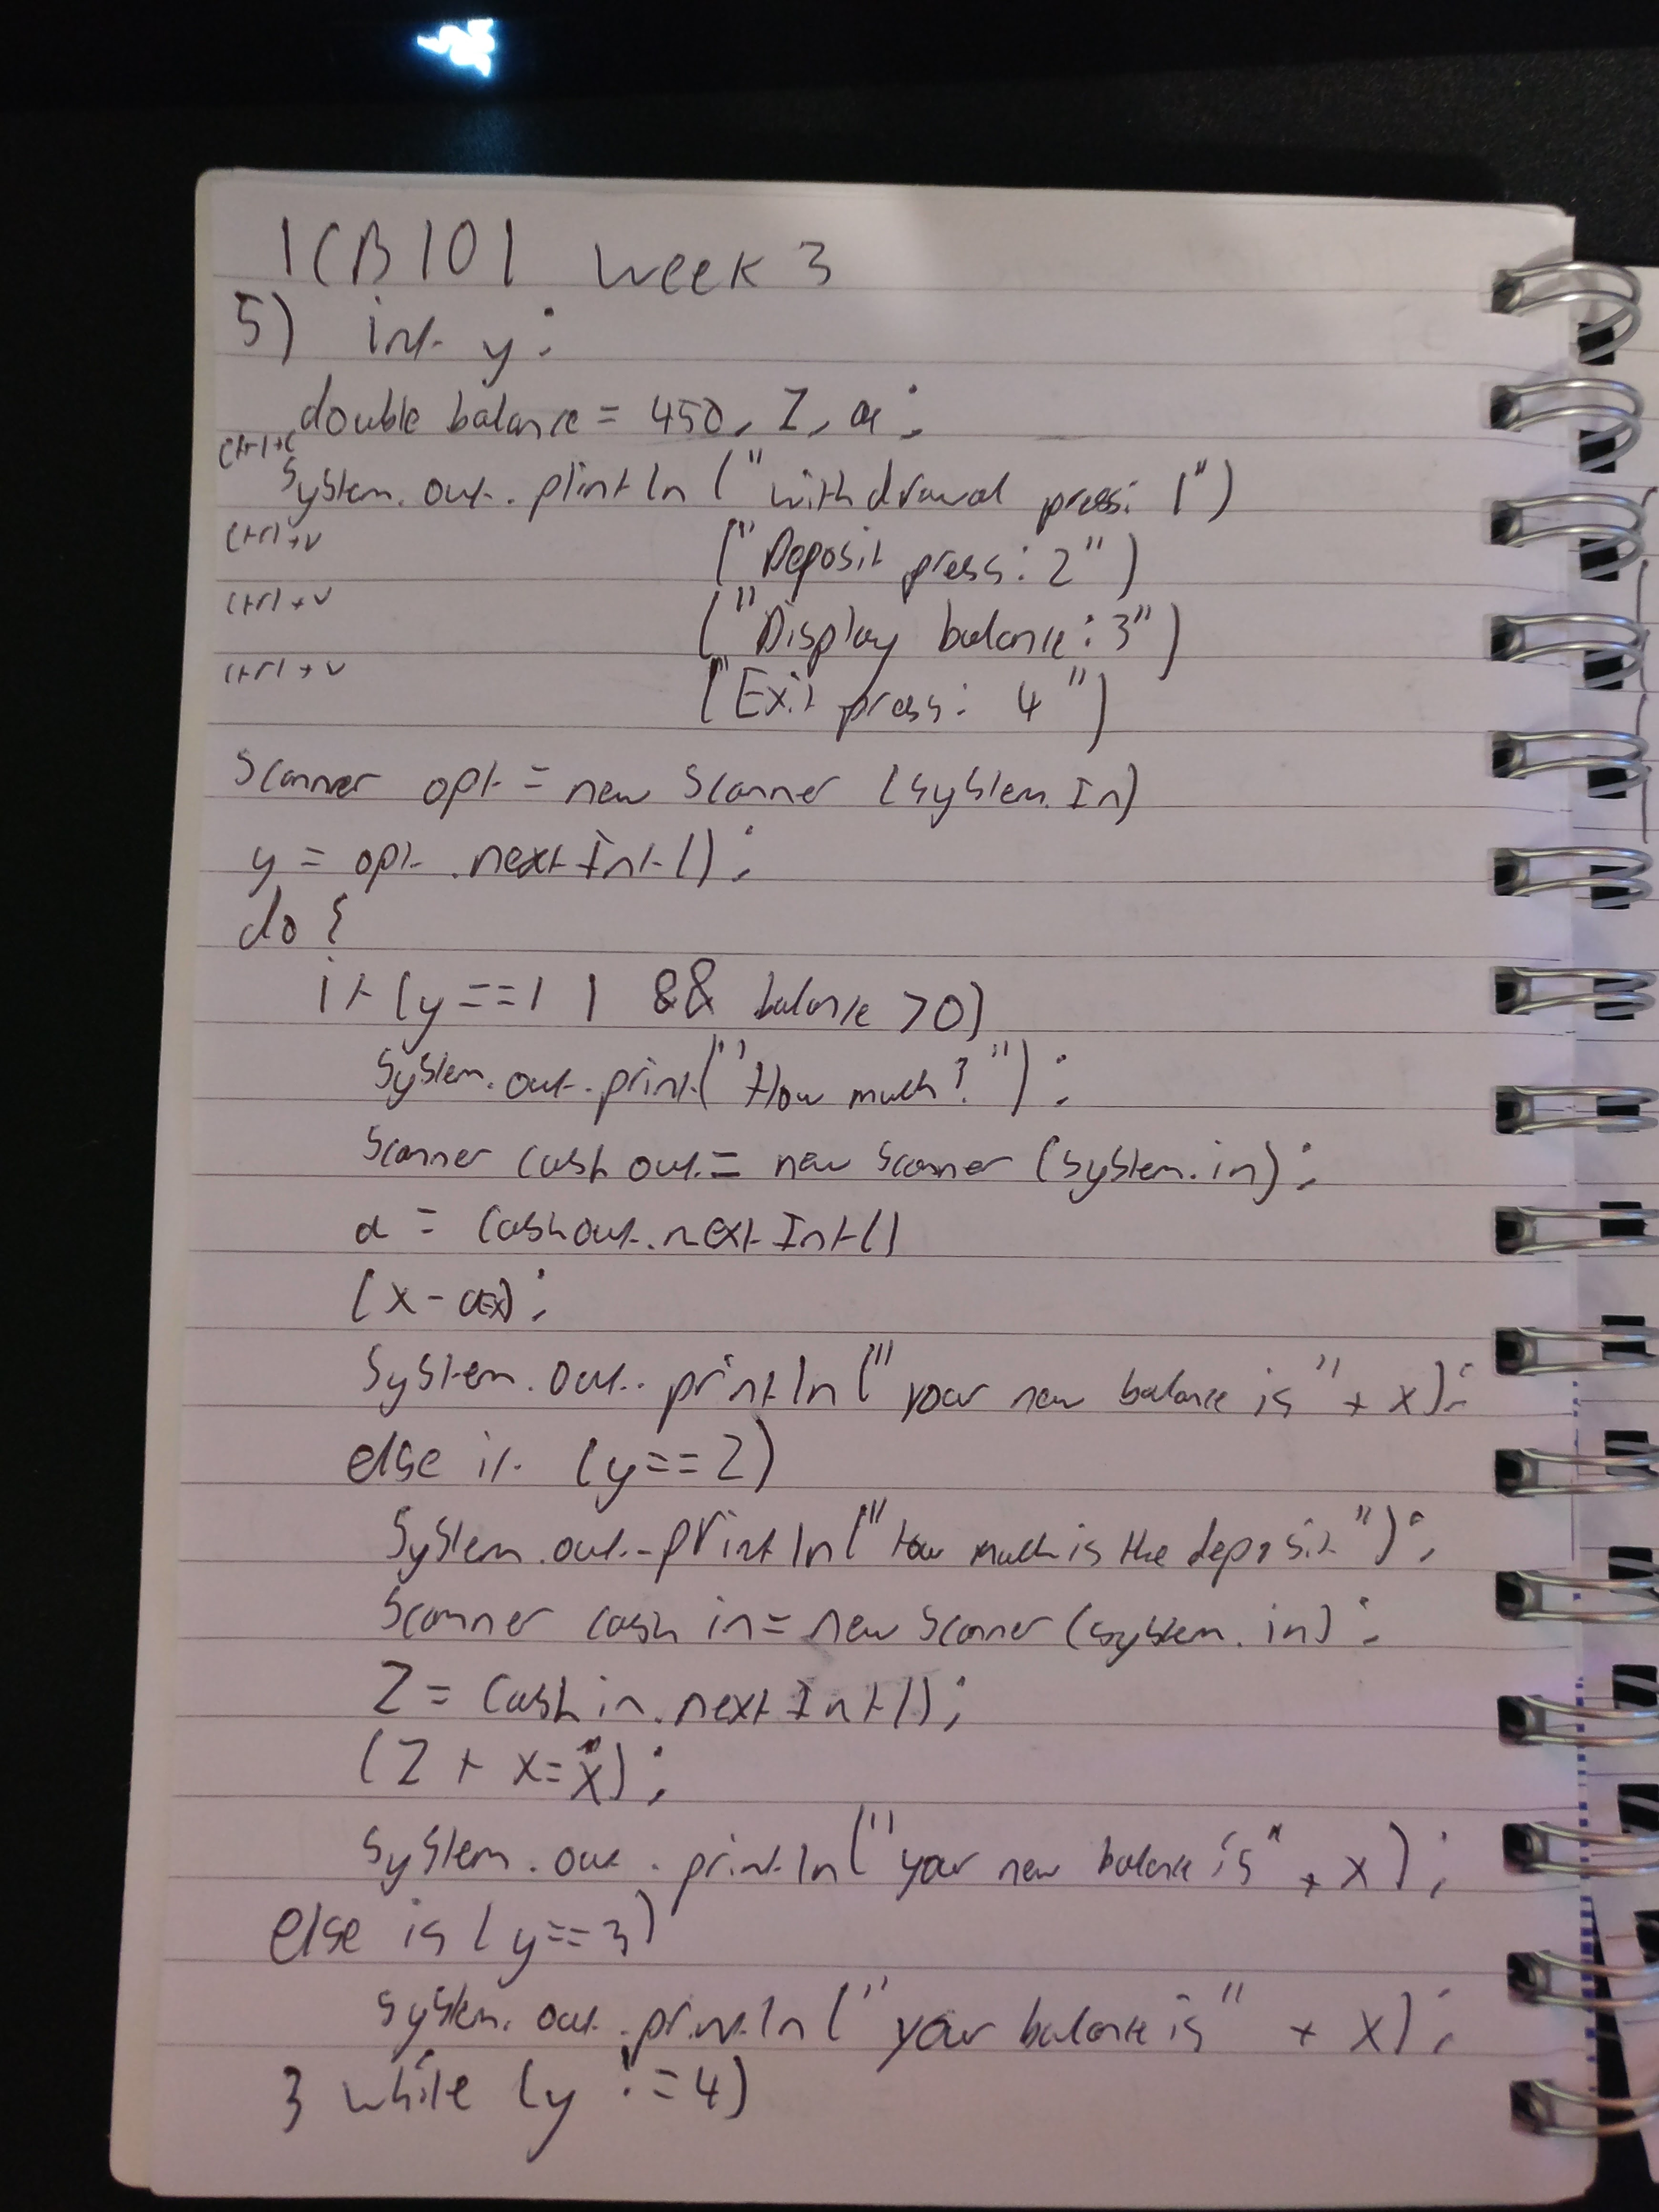 ICB101 week 3
5) int y;
double balance = 450, Z, a;
ctrl+c
System.out.println ("withdrawal press: 1")
ctrl+v ("Deposit press: 2")
ctrl+v ("Display balance: 3")
ctrl+v ("Exit press: 4")
Scanner opt = new Scanner (System.In)
y = opt.nextInt();
do {
if (y==1 | && balance >0)
System.out.print("How much?");
Scanner cash out = new Scanner (system.in);
a = cashout.nextInt()
(x -
System.out.println("your new balance is" + x);
else if (y==2)
System.out.println("how much is the deposit");
Scanner cash in = new Scanner (system.in);
Z = cash in.nextInt();
(Z + x = x);
System.out.println("your new balance is" + x);
else is (y==3)
System.out.println("your balance is" + x);
} while (y != 4)